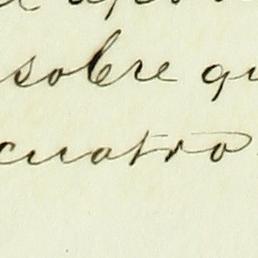 sobre qu
cuatro